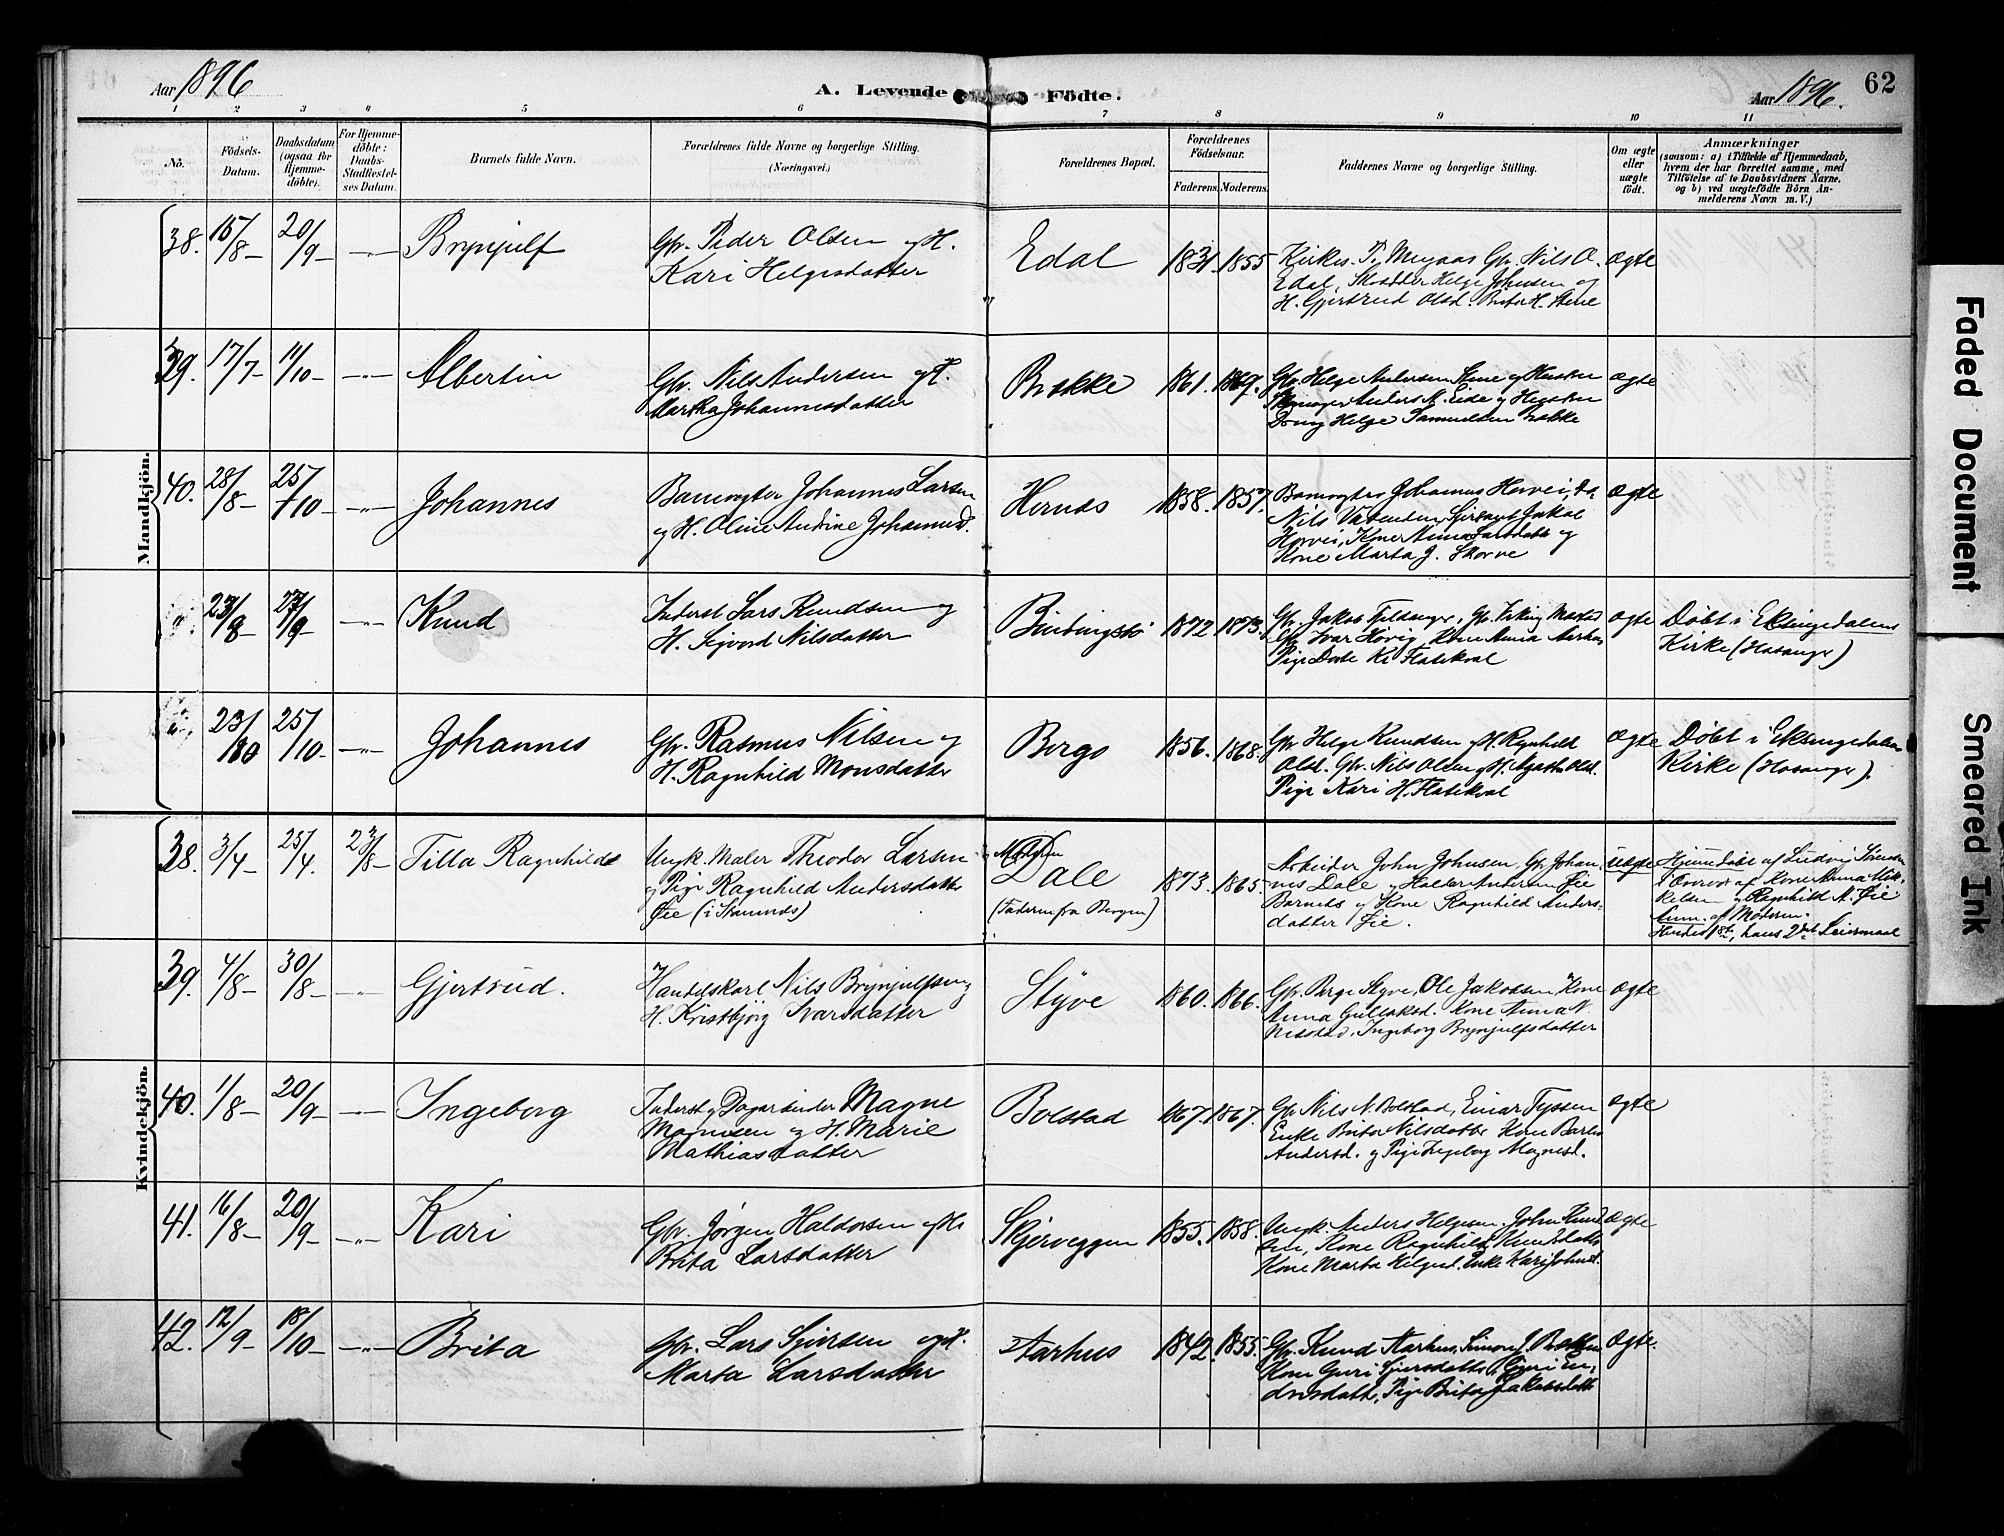 Aar 1896
A. Levende Födte.
Aar 1896.
62
1 2 3 4 5 6 7 8 9 10 11
No.
Födsels-
Datum.
Daabsdatum
(ogsaa for
Hjemme-
döbte).
For Hjemme-
döbte:
Daabs-
Stadfestel-
ses Datum.
Barnets fulde Navn.
Forældrenes fulde Navne og borgerlige Stilling.
(Næringsvei.)
Forældrenes Bopæl.
Forældrenes
Födselsaar.
Faderens.
Moderens.
Faddernes Navne og borgerlige Stilling.
Om ægte
eller
uægte
födt.
Anmærkninger
(saasom: a) i Tilfælde af Hjemmedaab,
hvem der har forrettet samme, med
Tilföielse af to Daabsvidners Navne,
og b) ved uægtefödte Börn An-
melderens Navn m. V.)
Mandkjön.
38. 15/8 20/9 Brynjulf
Gbr. Peder Olsen og H.
Kari Helgesdatter
Edal 1831. 1855
Kirkes. P. Mugaas Gbr. Nils O.
Edal, Helge Johnsen og
H. Gjertrud Olsd. Brita H.
ægte
39. 17/7 11/10 Albertin
Gbr. Nils Andersen og H.
Marta Johannesdatter
Brække 1861. 1869.
Gbr. Helge Andersen og
Anders M. Eide og
Dreng Helge Samuelsen Brække
ægte
40. 28/8 25/10 Johannes
Banevogter Johannes Larsen
og H. Oline Andrine Johannesd.
Hernes 1858. 1857.
Banevogter Johannes Horvei, do.
Nils Vatenden, Jakob
Horvei, Kone Anna Larsdatter og
Kone Marta J. Skorve
ægte
23/8 27/9 Knud
Inderst Lars Knudsen og
H. Sigvord Nilsdatter
1872 1873.
Gbr. Jakob Fildanger, Gbr. Viking
Gbr. Ivar Hovig, Kone Anna Aarhus
Pige Dorte K. Flatekval
ægte
Döbt i Eksingedalens
Kirke (Hosanger)
23/10 25/10 Johannes
Gbr. Rasmus Nilsen og
H. Ragnhild Monsdatter
Bergo 1856. 1868.
Gbr. Helge Knudsen og H. Ragnhild
Olsd. Gbr. Nils Olsen og H. Agatha Olsd.
Pige Kari H. Flatekval
ægte
Döbt i Eksingedalens
Kirke (Hosanger).
Kvindekjön.
38. 3/4 25/4. 23/8 Tilla Ragnhilda
Ungk. Maler Theodor Larsen
og Pige Ragnhild Andersdatter
Øie (i Stamnes)
Dale
(Faderen fra Bergen)
1873. 1865.
Arbeider John Johnsen, Gbr. Johan-
nes Dale og Haldor Andersen Øie
Barnets og Kone Ragnhild Anders-
datter Øie.
uægte
Hjemmedöbt af Ludvig Sörensen
i Overvær af Kone Anna Mik-
kelsen og Ragnhild A. Øie
Anm. af Moderen.
Hendes 1ste, hans 2det Leiermaal
39. 4/8 30/8 Gjertrud.
Handelskarl Nils Brynjulfsen og
H. Kristbjörg Ivarsdatter
Styve 1860. 1866.
Gbr. Birge Styve, Ole Jakobsen, Kone
Anna Gullaksd. Kone Anna N.
Nesstad, Ingeborg Brynjulfsdatter
ægte
40. 1/8 20/9 Ingeborg
Inderst og Dagarbeider Magne
Monsen og H. Marie
Mathiasdatter
Bolstad 1867. 1867.
Gbr. Nils N. Bolstad, Einar Tyssen
Enke Brita Nilsdatter Kone Barbro
Andersd. og Pige Ingeborg Magnesd.
ægte
41. 16/8 20/9 Kari
Gbr. Jörgen Haldorsen og H.
Brita Larsdatter
Skjerveggen 1855. 1858.
Ungk. Anders Helgesen, John Knud-
sen, Kone Ragnhild Knudsdatter
Kone Marta Helgesd. Enke Kari Johnsd.
ægte
42. 12/9 18/10 Brita
Gbr. Lars Sjursen og H.
Marta Larsdatter
Aarhus 1842. 1855.
Gbr. Knud Aarhus, Simon J. Bakken
Kone Guri Sjursdatter, Guri En-
dresdatt., Pige Brita Jakobsdatt.
ægte.
Faded Document
Smeared Ink